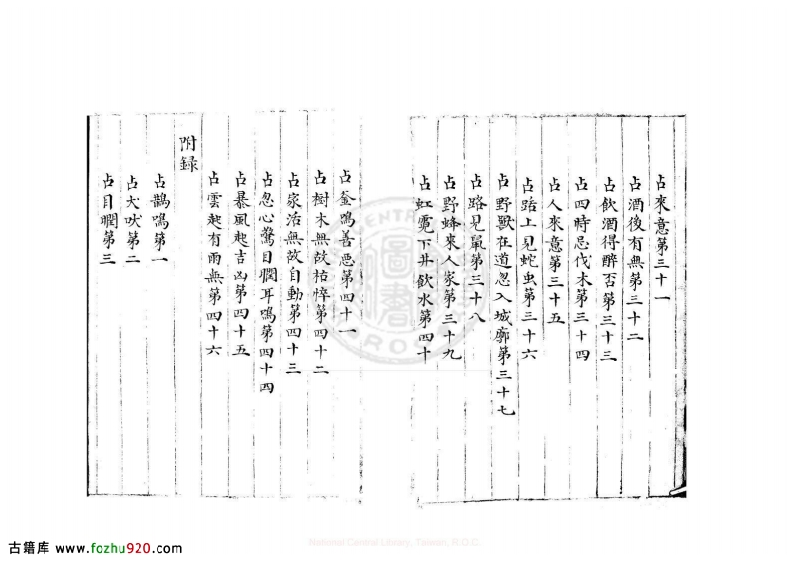 占來意第三十一
占酒後有無第三十二
占飲酒得醉否第三十三
占四時忌伐木第三十四
占人來意第三十五
占路上見蛇虫第三十六
占野獸在道忽入城廓第三十七
占路見鼠第三十八
占野蜂來人家第三十九
占虹霓下井飲水第四十
占釜鳴善惡第四十一
占樹木無故枯悴第四十二
占家活無故自動第四十三
占忽心驚目瞤耳鳴第四十四
占暴風起吉凶第四十五
占雲起有雨無第四十六
附録
占鵲鳴第一
占犬吠第二
占目瞤第三
古籍库 www.fozhu920.com
National Central Library, Taiwan, R.O.C.